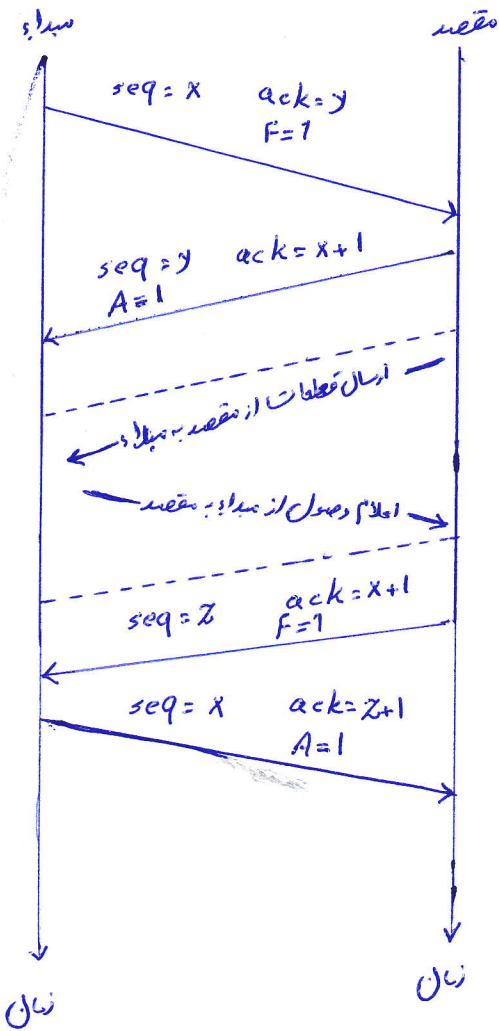 مبداء
مقصد
seq = x ack = y
F=1
seq = y ack = x+1
A=1
ارسال قطعات از مقصد به مبداء
اعلام وصول از مبداء به مقصد
seq = z ack = x+1
F=1
seq = x ack = z+1
A=1
زمان
زمان